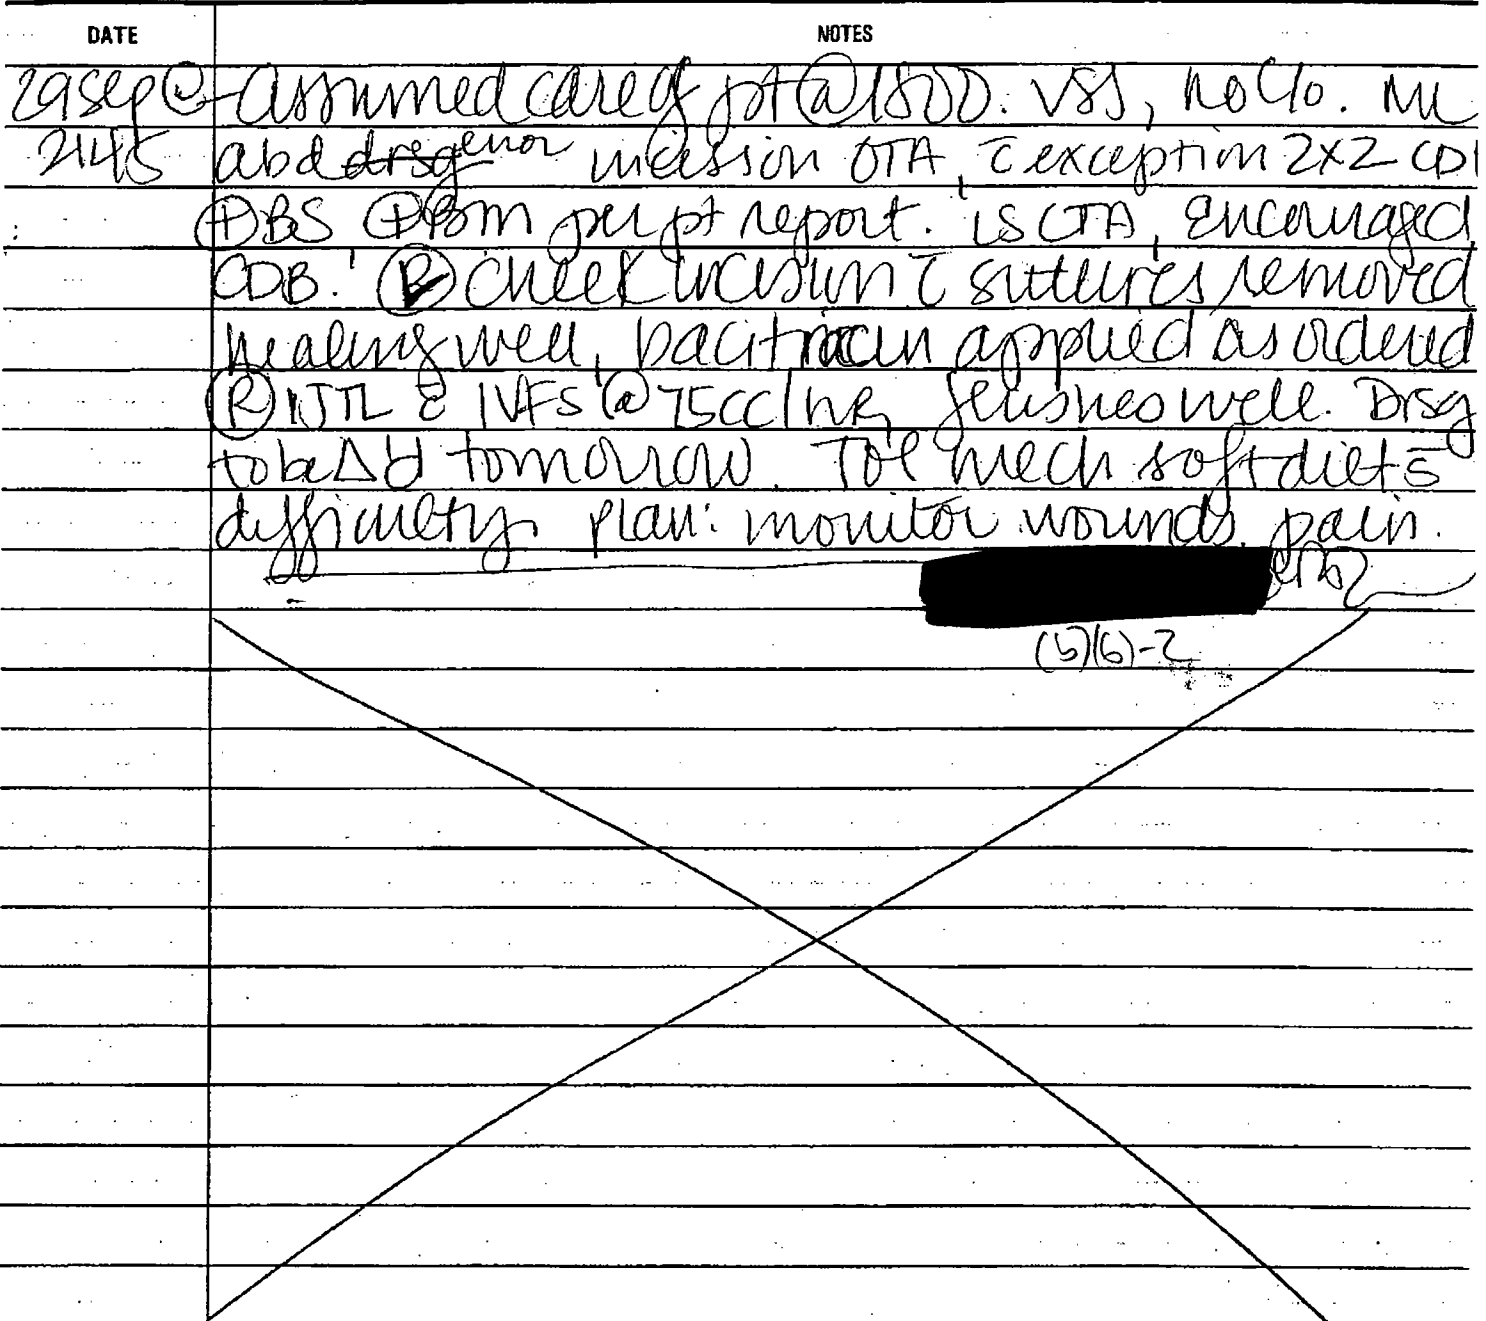 DATE NOTES
29sep@ Assumed care of pt @ 1800. VSS, no c/o. ML
2145 abd drsg error incission OTA, c̄ exception 2x2 CDI
⊕BS ⊕BM per pt report. LSCTA, encouraged
CDB. Ⓡ cheek incision c̄ sutures removed
healing well, bacitracin applied as ordered
Ⓡ IJTL c̄ IVFS @ 75cc/hr, flushes well. Drsg
to be Δ'd tomorrow. Tol mech soft diet s̄
difficulty. Plan: monitor wounds, pain.
(b)(6)-2